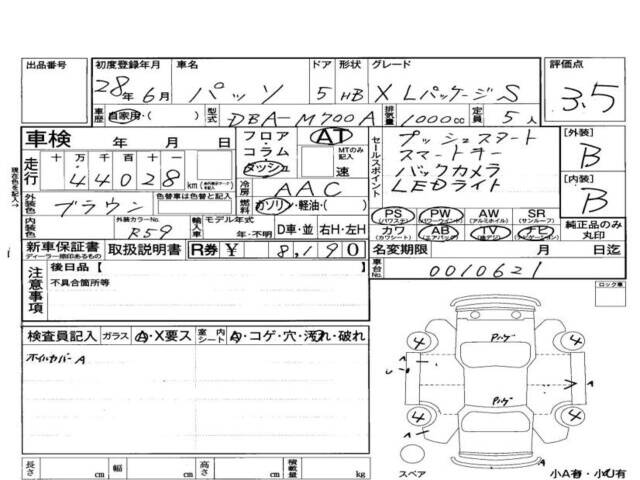 出品番号 初度登録年月 車名 ドア 形状 グレード 評価点
28年6月 パッソ 5 HB X Lパッケージ S 3.5
車歴 自家用・( ) 型式 DBA-M700A 排気量 1000cc 定員 5人
車検 年 月 日 フロア AT セールスポイント プッシュスタート [外装]
コラム MTのみ記入 スマートキー B
走行 十 万 千 百 十 一 ダッシュ 速 バックカメラ
44028 km 冷房 AAC LEDライト [内装]
現在色を記入→ 外装色 ブラウン 色替車は色替と記入 燃料 ガソリン・軽油・( ) B
PS (パワステ) PW (パワーウインド) AW (アルミホイル) SR (サンルーフ)
内装色 外装カラーNo. R59 輸入車 モデル年式 年・不明 D車・並 右H・左H カワ (カワシート) AB (エアバッグ) TV (地デジ) ナビ (ナビゲーション) 純正品のみ丸印
新車保証書 ディーラー捺印あるもの 取扱説明書 R券 ¥ 8,190 名変期限 月 日迄
注意事項 後日品[ ] 車台No. 0010621
不具合箇所等 ロック車
検査員記入 ガラス A・X要ス 室内シート A・コゲ・穴・汚れ・破れ
ホイルカバーA
4 4
A A
U
4 4
A
長さ cm 幅 cm 高さ cm 積載量 kg スペア 小A有・小U有